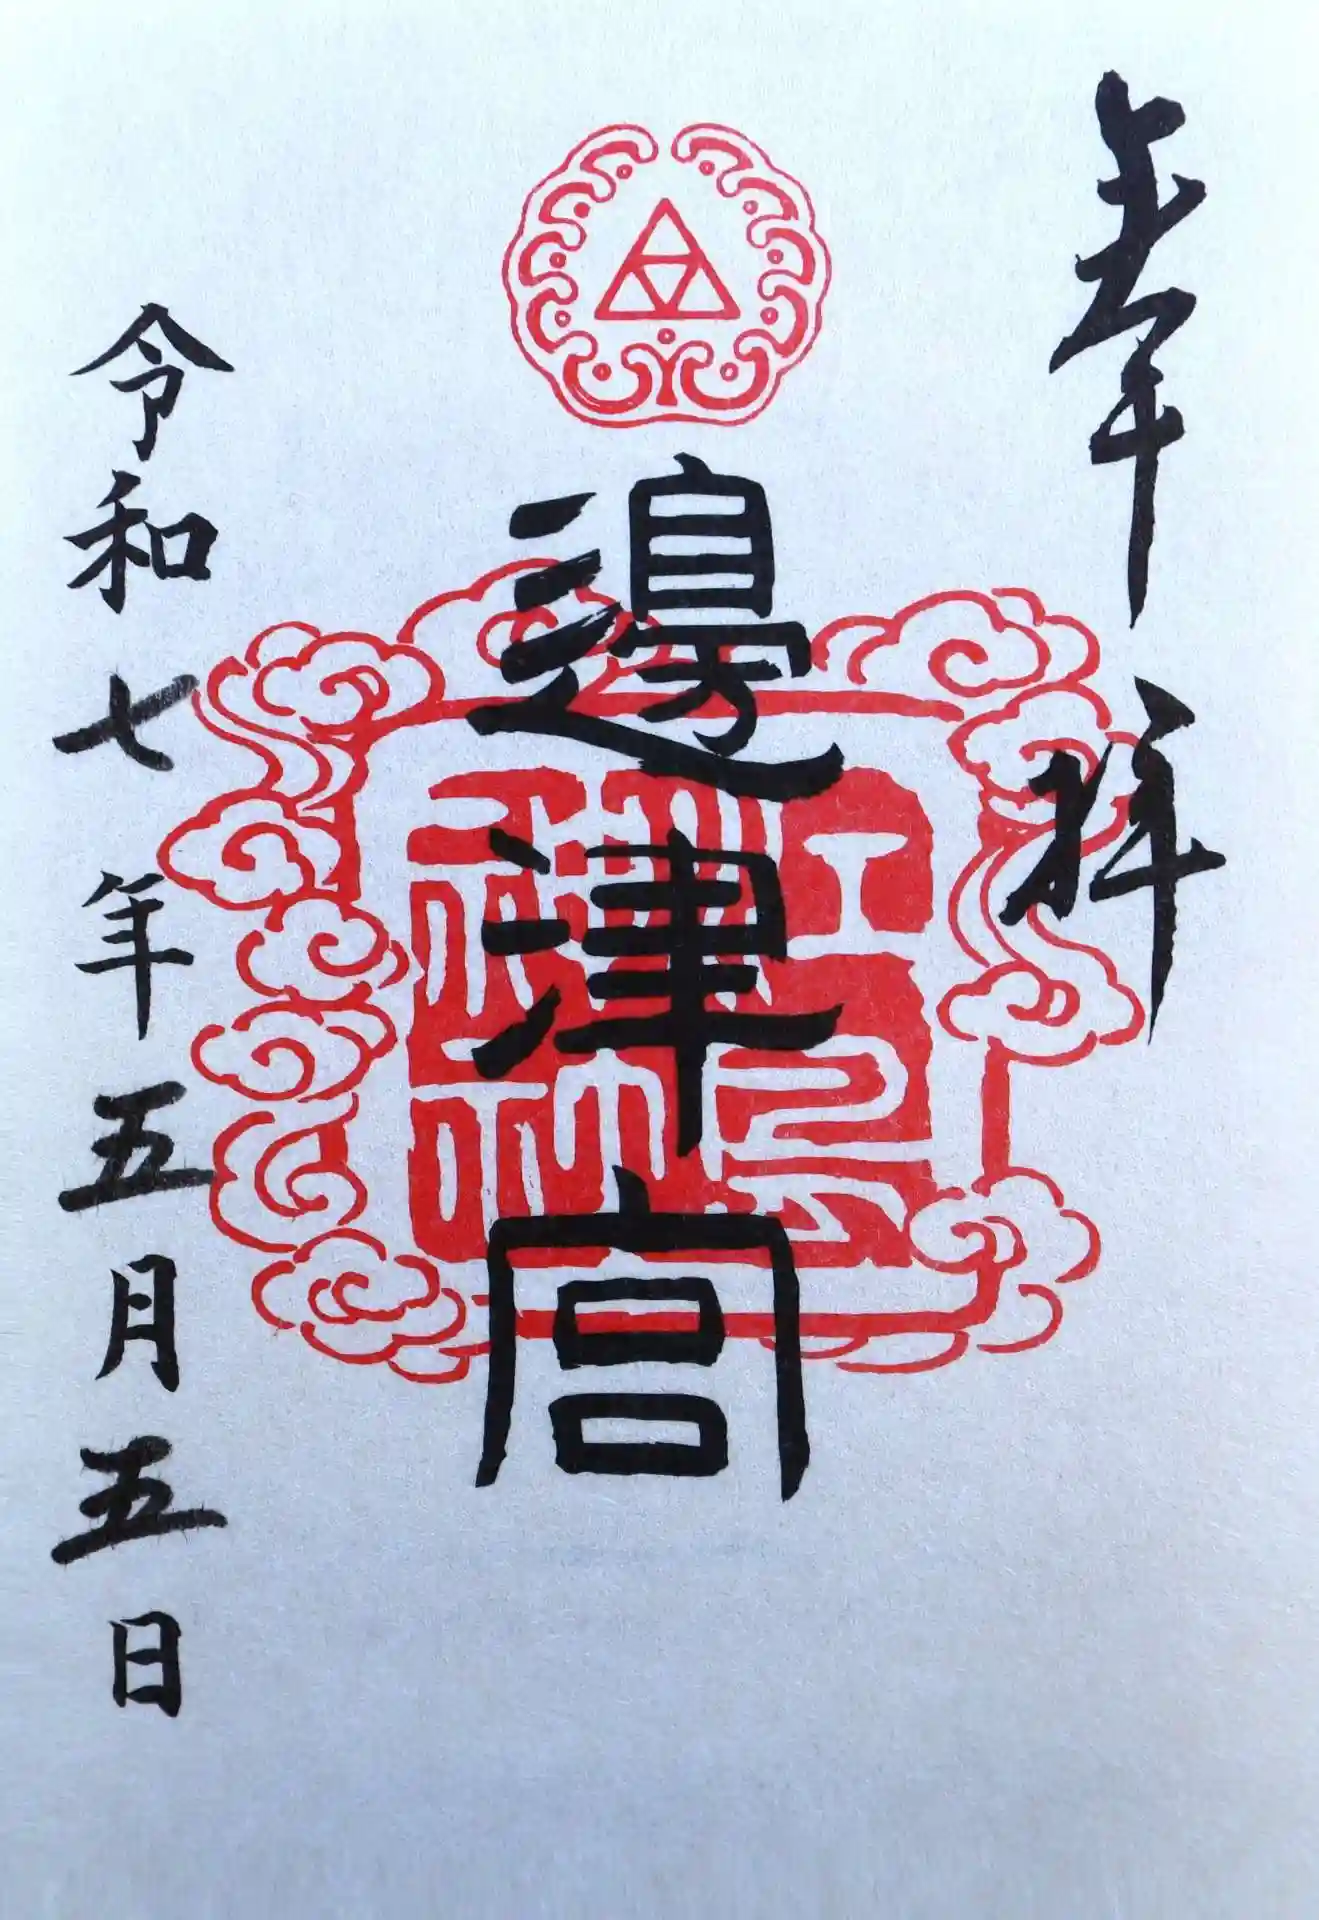 奉拝
邊津宮
令和七年五月五日